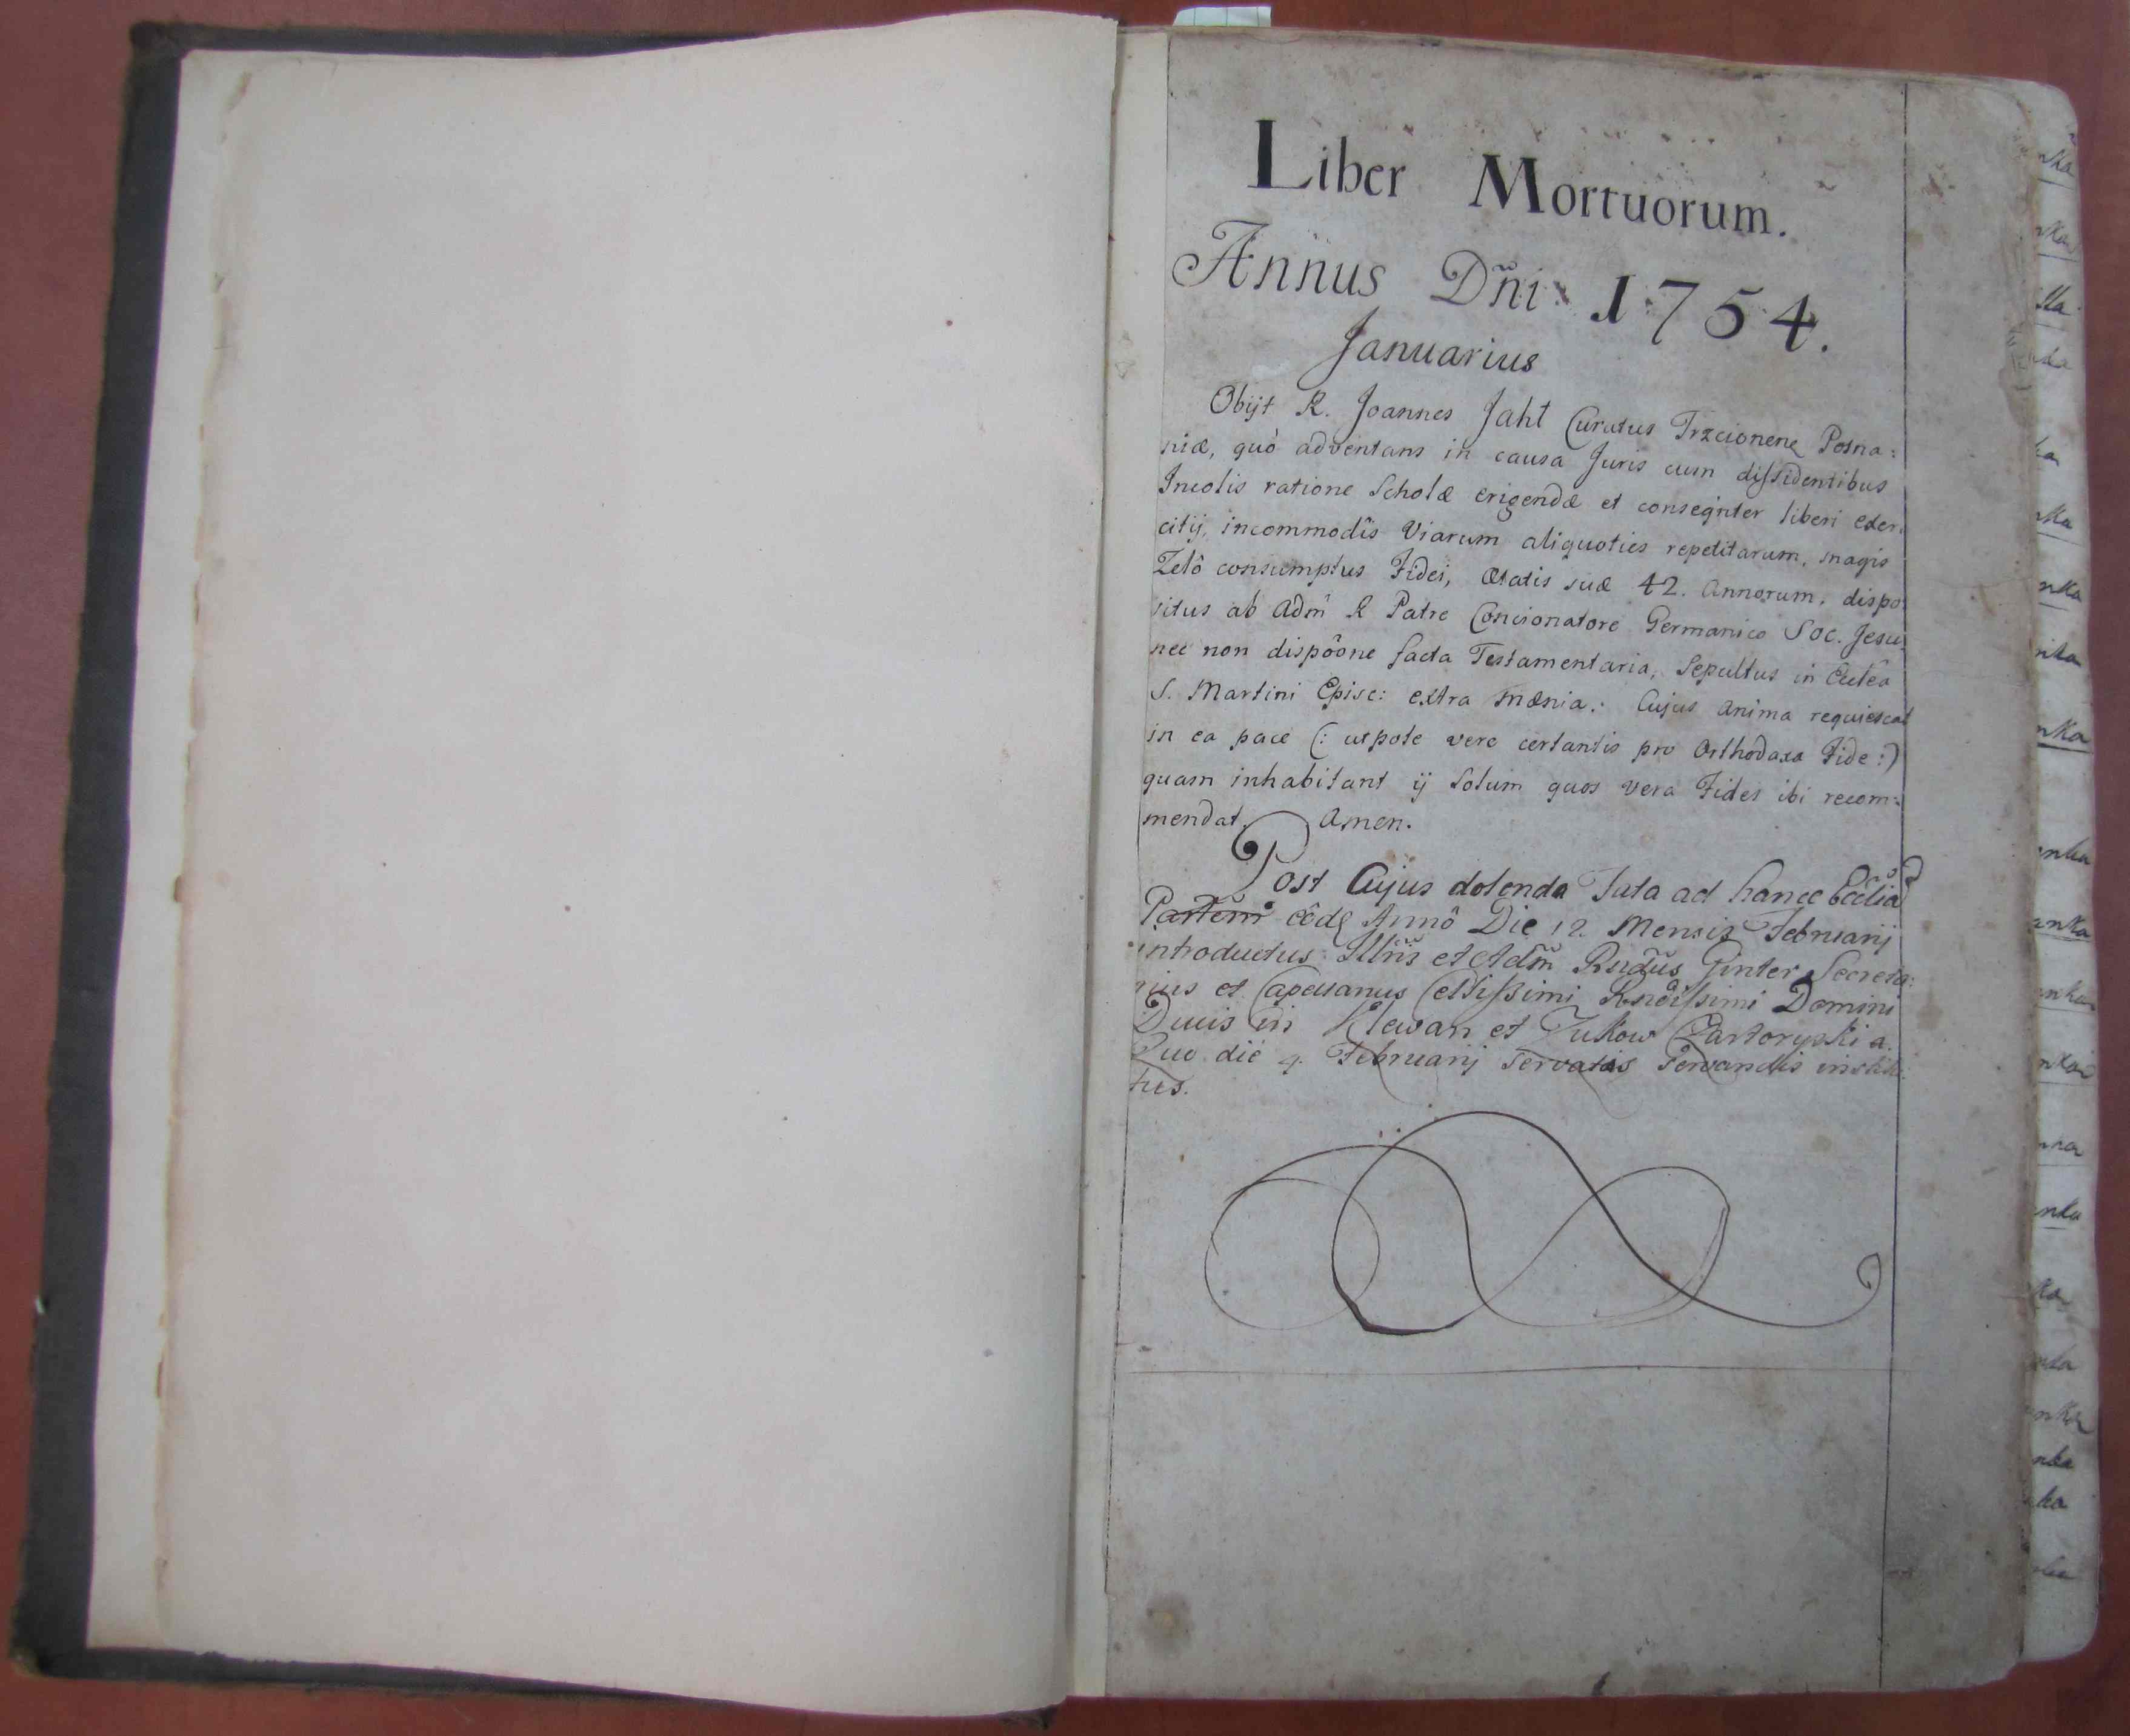 Liber Mortuorum.
Annus Dñi: 1754.
Januarius
Obijt R. Joannes Jaht Curatus Trzcionen Posna:
niæ, quò adventans in causa Juris cum dissidentibus
Incolis ratione Scholæ erigendæ et conseqnter liberi exer:
citij, incommodis Viarum aliquoties repetitarum, magis
Zelô consumptus Fidei, Ætatis suæ 42. Annorum, dispo:
situs ab Adm R Patre Concionatore Germanico Soc. Jesu
nec non dispôône facta Testamentaria, Sepultus in Eccleâ
S. Martini Episc: extra mænia. Cujus anima requiescat
in ea pace (: utpote vere certantis pro Orthodoxa Fide :)
quam inhabitant ij Solum quos vera Fides ibi recom:
mendat. Amen.
Post Cujus dolenda Fata ad hance Eccliã
Partem eôdē Annô Die 12 Mensis Februarij
introductus Illris et Adm Rndus Ginter Secreta:
rius et Capellanus Celsissimi Rndissimi Domini
Ducis in Klewan et Zukow Czartoryski a
Quo die 4. Februarij Servatis Servandis instit
tus.